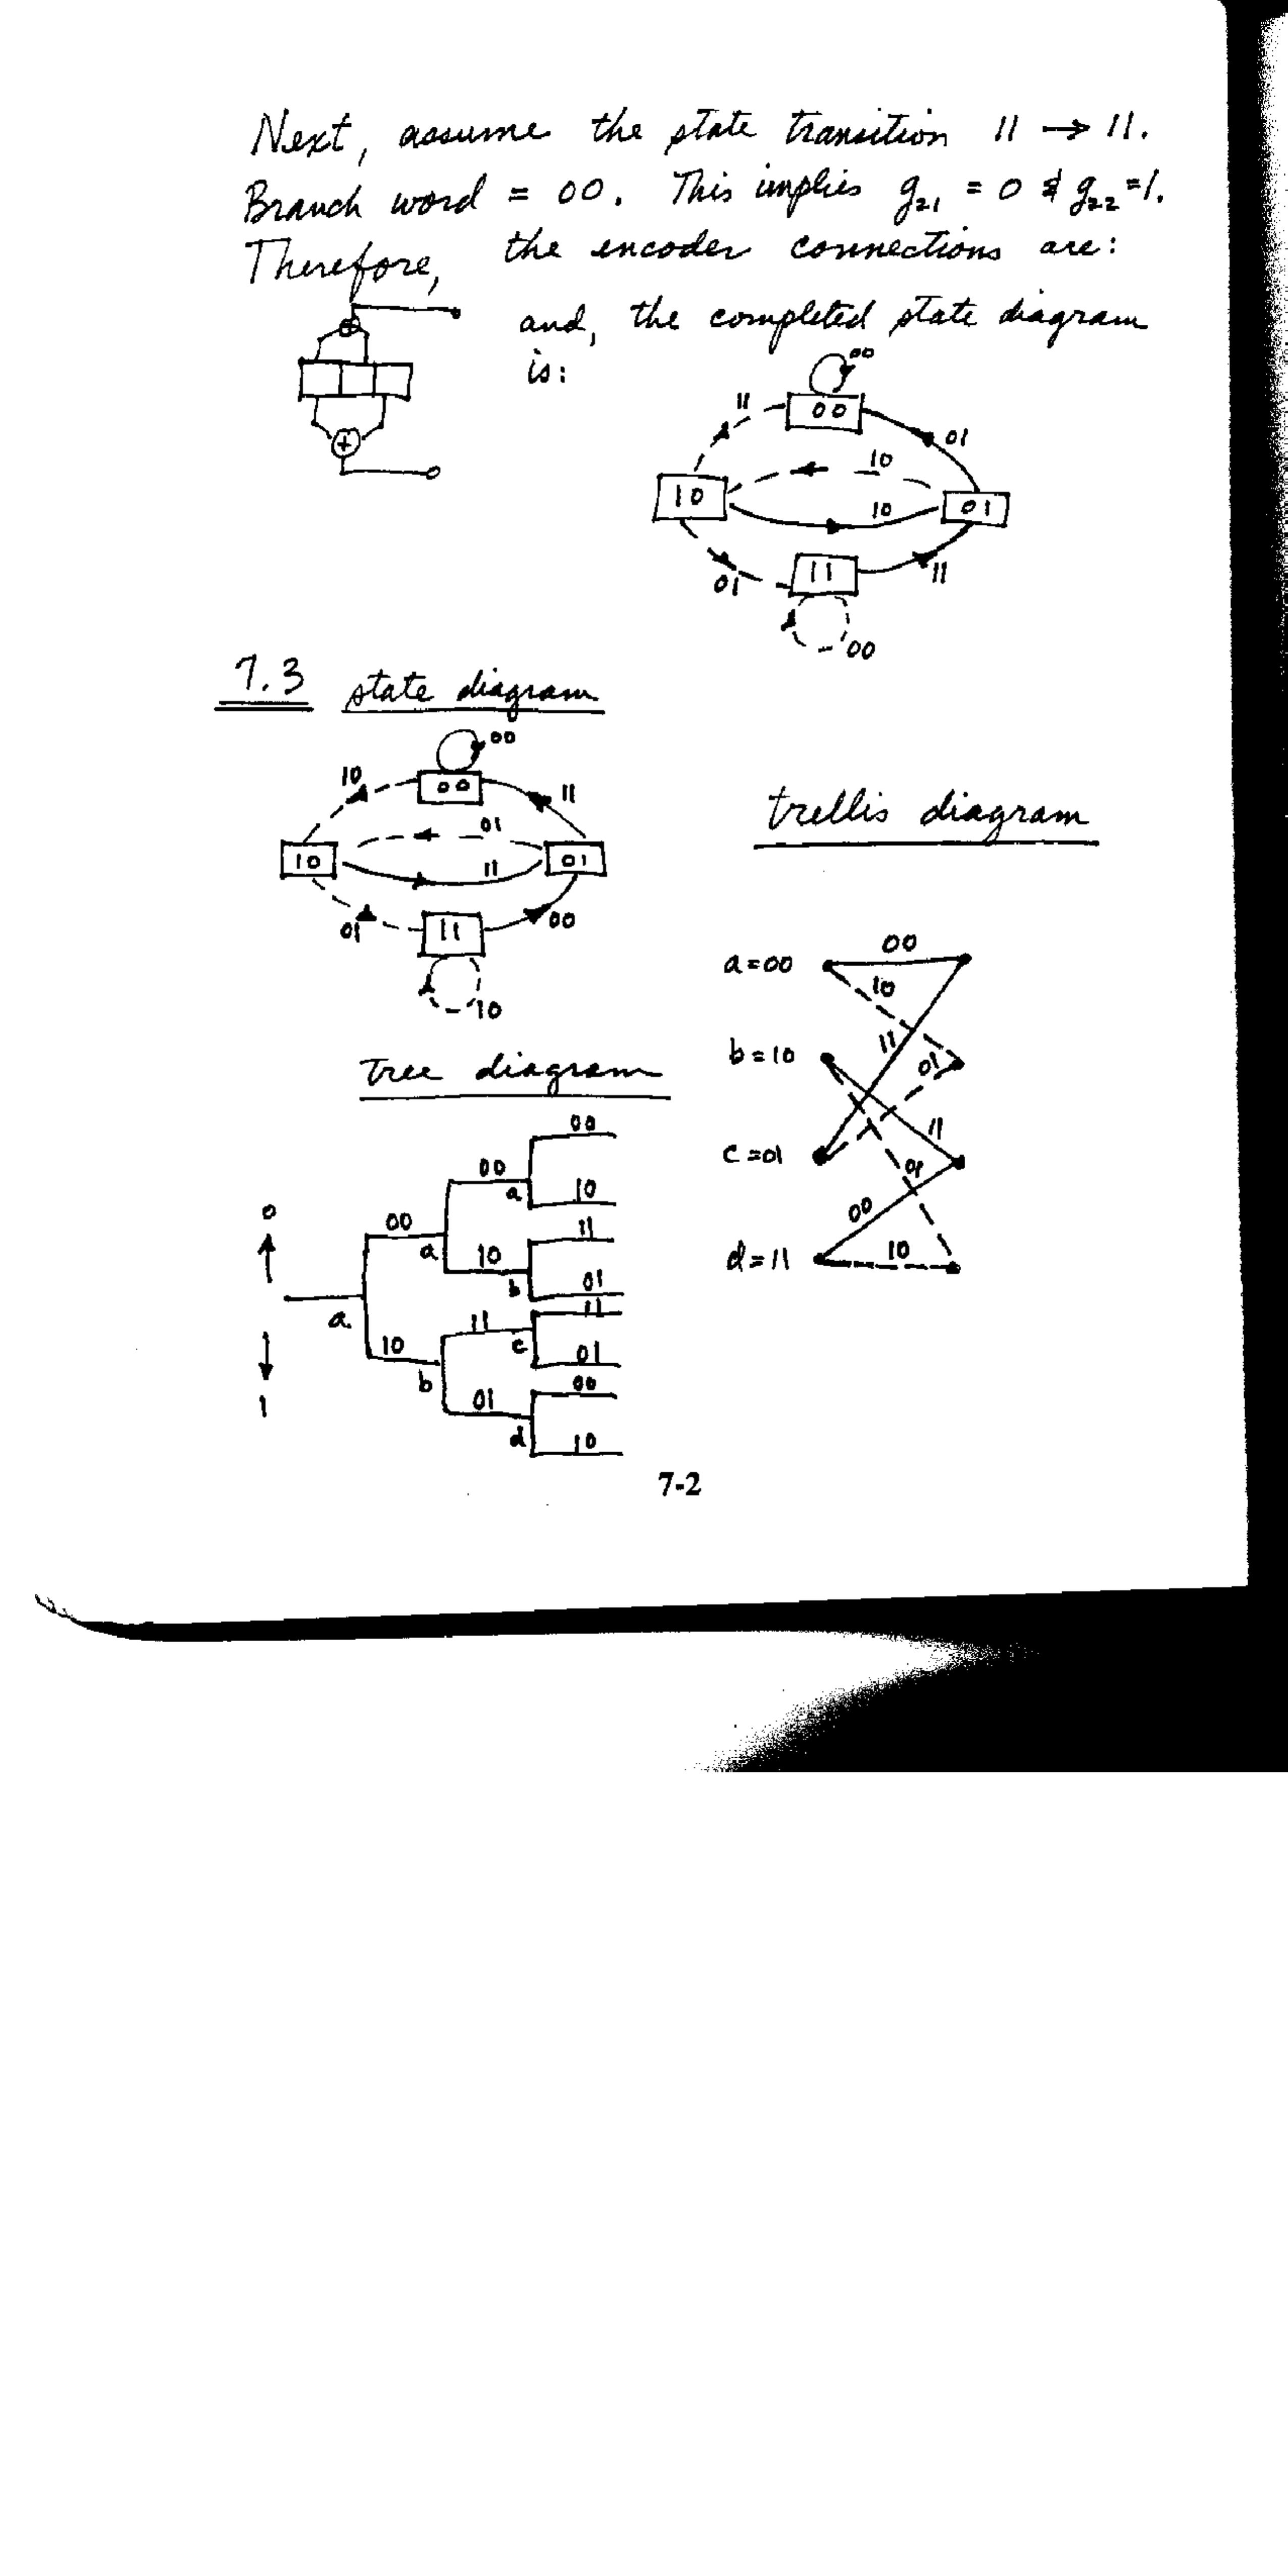 Next, assume the state transition 11 → 11.
Branch word = 00. This implies g₂₁ = 0 & g₂₂ = 1.
Therefore, the encoder connections are:
and, the completed state diagram
is:
00
11
00
01
10
10
10
01
01
11
11
00
7.3 state diagram
00
10
00
11
01
10
01
11
01
11
00
10
trellis diagram
a=00
00
10
b=10
11
01
c=01
11
01
00
d=11
10
tree diagram
00
00
a
10
0
00
11
a
10
b
01
a
11
11
10
c
01
b
00
1
01
d
10
7-2